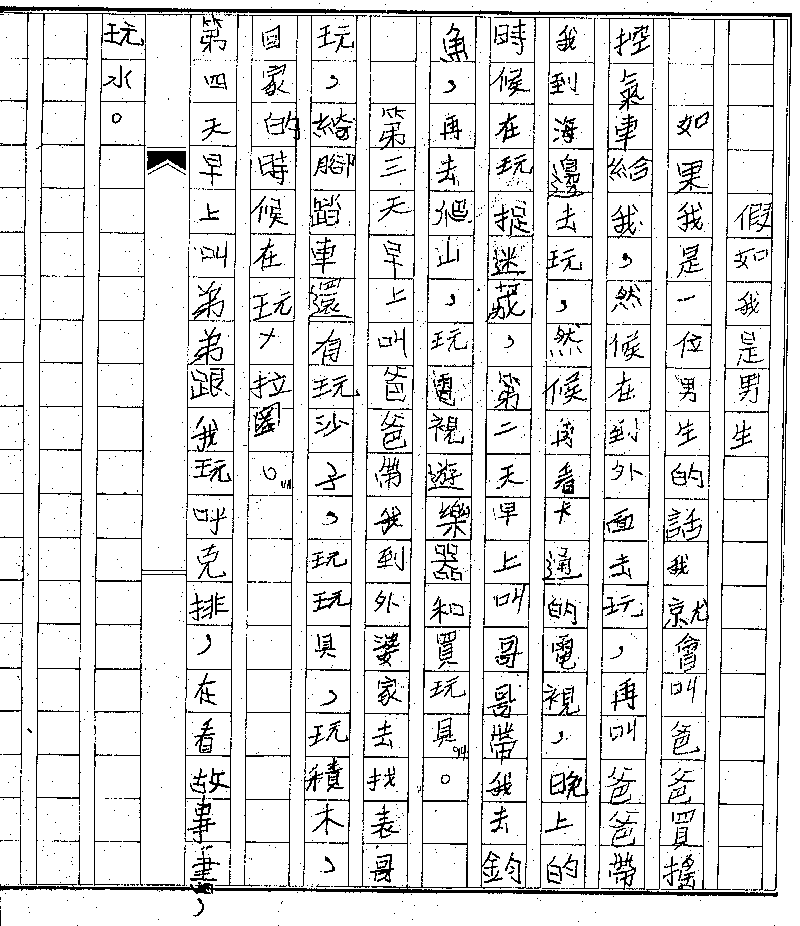 假如我是男生
如果我是一位男生的話我就會叫爸爸買搖
控氣車給我，然候在到外面去玩，再叫爸爸帶
我到海邊去玩，然候再看卡通的電視，晚上的
時候在玩捉迷茂，第二天早上叫哥哥帶我去鈞
魚，再去爬山，玩電視遊樂器和買玩具。
第三天早上叫爸爸帶我到外婆家去找表哥
玩，綺腳踏車還有玩沙子，玩玩具，玩積木，
回家的時候在玩大拉圈。
第四天早上叫弟弟跟我玩呼克排，在看故事畫，
玩水。